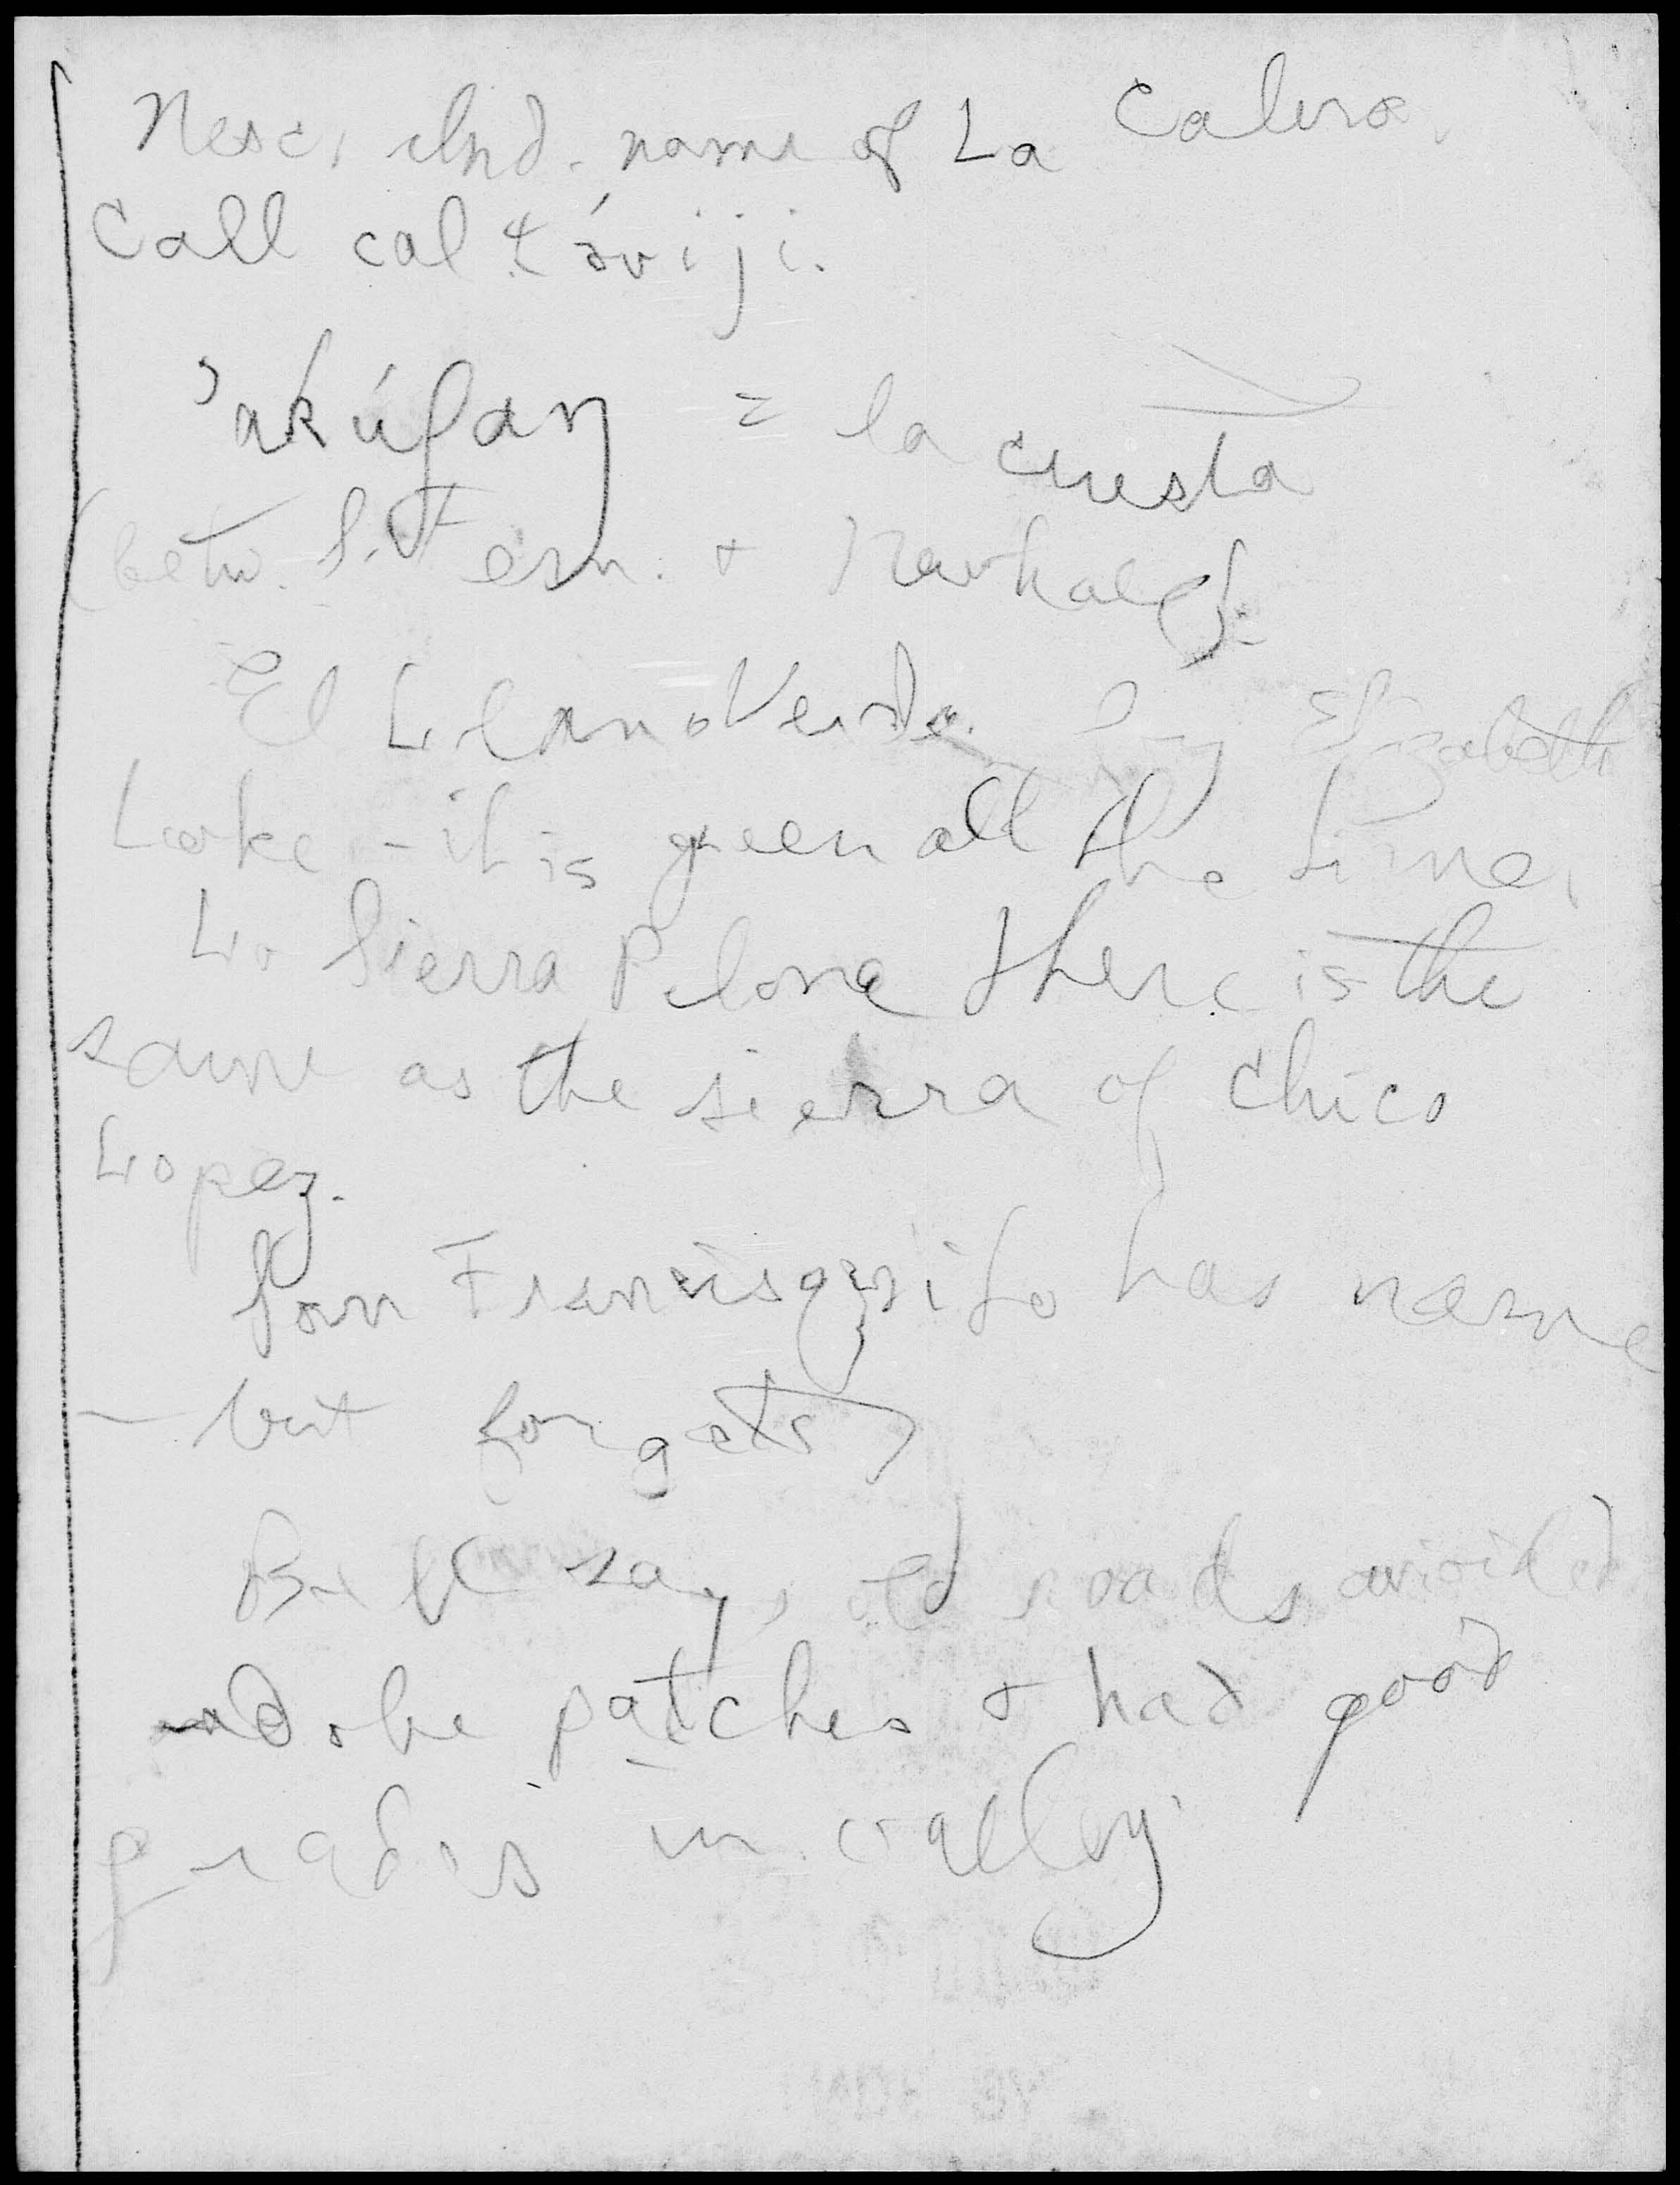 Nesc. Ind. name of La Calera.
Call cal tóviji.
'akúfaŋ = la cuesta
(betw. S. Fern. & Newhall).
El Llano Verde. by Elizabeth
Lake - it is green all the time.
La Sierra Pelona there is the
same as the sierra of Chico
Lopez.
San Francisquito has name
- but forgets
says old roads avoided
adobe patches & had good
grades in valley.